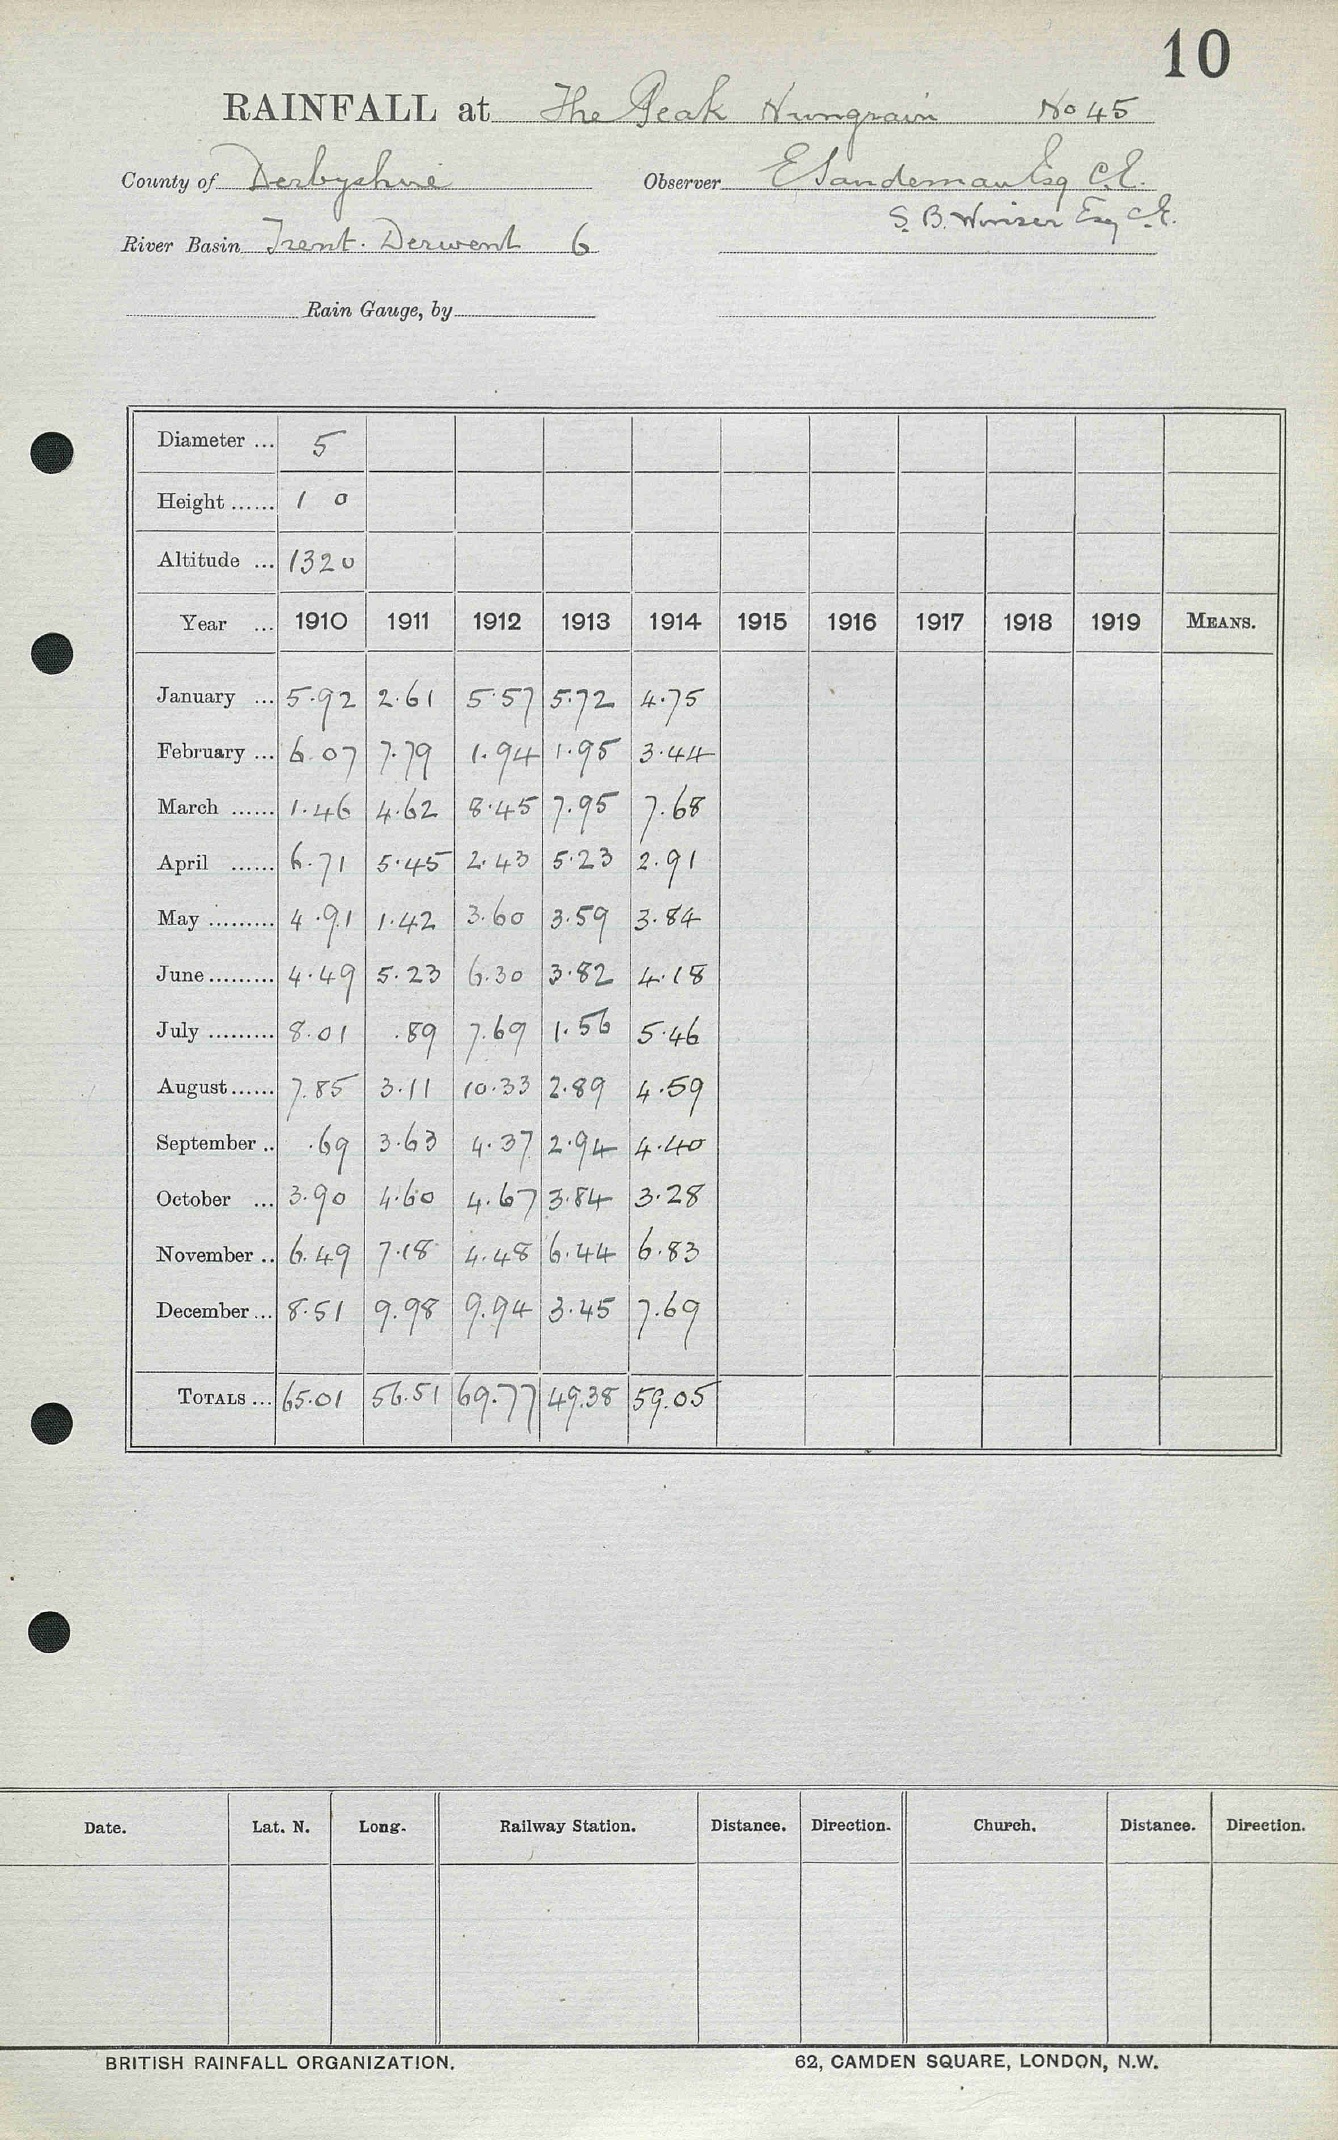 10
RAINFALL at The Peak Hungrain No 45
County of Derbyshire Observer E Sandeman Esq C.E.
S. B. Winser Esq C.E.
River Basin Trent. Derwent 6
Rain Gauge, by
Diameter ... 5
Height ...... 1 0
Altitude ... 1320
Year ... 1910 1911 1912 1913 1914 1915 1916 1917 1918 1919 MEANS.
January ... 5.92 2.61 5.57 5.72 4.75
February ... 6.07 7.79 1.94 1.95 3.44
March ...... 1.46 4.62 8.45 7.95 7.68
April ...... 6.71 5.45 2.43 5.23 2.91
May ......... 4.91 1.42 3.60 3.59 3.84
June ......... 4.49 5.23 6.30 3.82 4.18
July ......... 8.01 .89 7.69 1.56 5.46
August ...... 7.85 3.11 10.33 2.89 4.59
September .. .69 3.63 4.37 2.94 4.40
October ... 3.90 4.60 4.67 3.84 3.28
November .. 6.49 7.18 4.48 6.44 6.83
December ... 8.51 9.98 9.94 3.45 7.69
TOTALS ... 65.01 56.51 69.77 49.38 59.05
Date. Lat. N. Long. Railway Station. Distance. Direction. Church. Distance. Direction.
BRITISH RAINFALL ORGANIZATION. 62, CAMDEN SQUARE, LONDON, N.W.